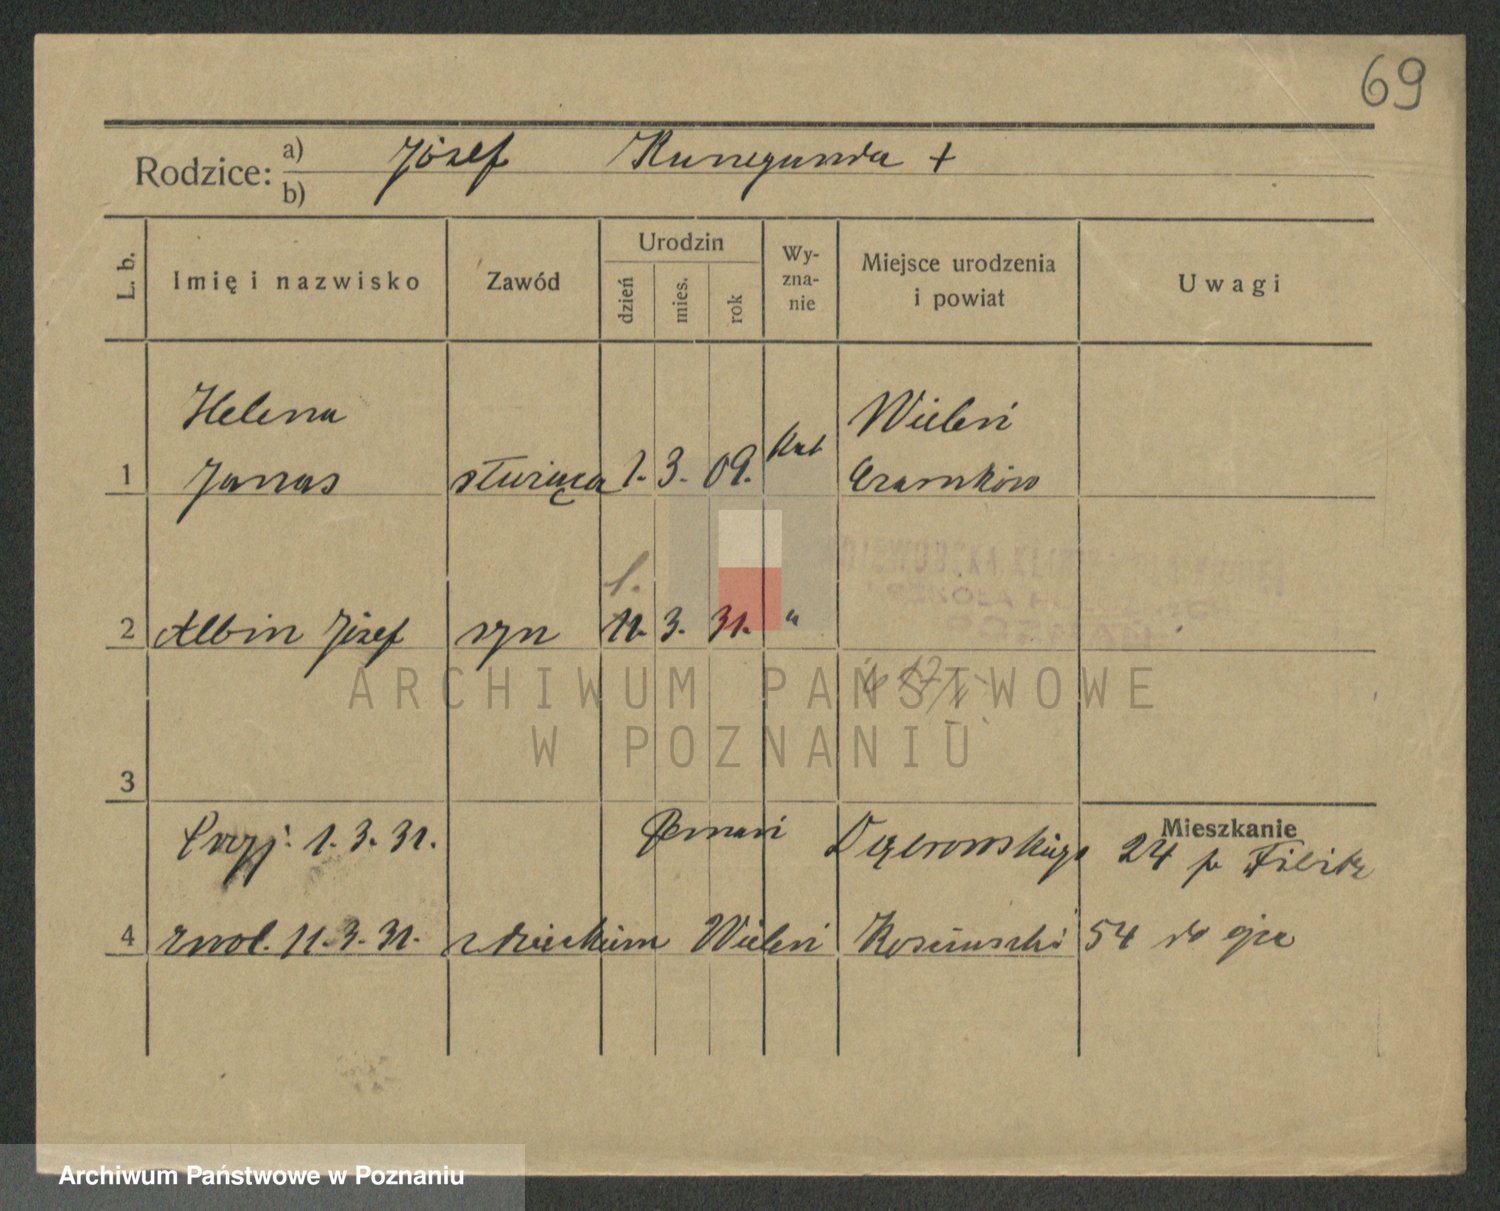 69
Rodzice: a) Józef Kunegunda +
b)
L. b.
Imię i nazwisko
Zawód
Urodzin
dzień
mies.
rok
Wy-
zna-
nie
Miejsce urodzenia
i powiat
Uwagi
Helena
Wieleń
1 Janas służąca 1. 3. 09. Kat Czarnków
1.
2 Albin Józef syn 11. 3. 31. "
ARCHIWUM PAŃSTWOWE
W POZNANIU
3
Mieszkanie
Przyj: 1. 3. 31. Poznań Dąbrowskiego 24 p
4 zwol. 11. 3. 31. z dzieckiem Wieleń Kościuszki 54 do ojca
Archiwum Państwowe w Poznaniu